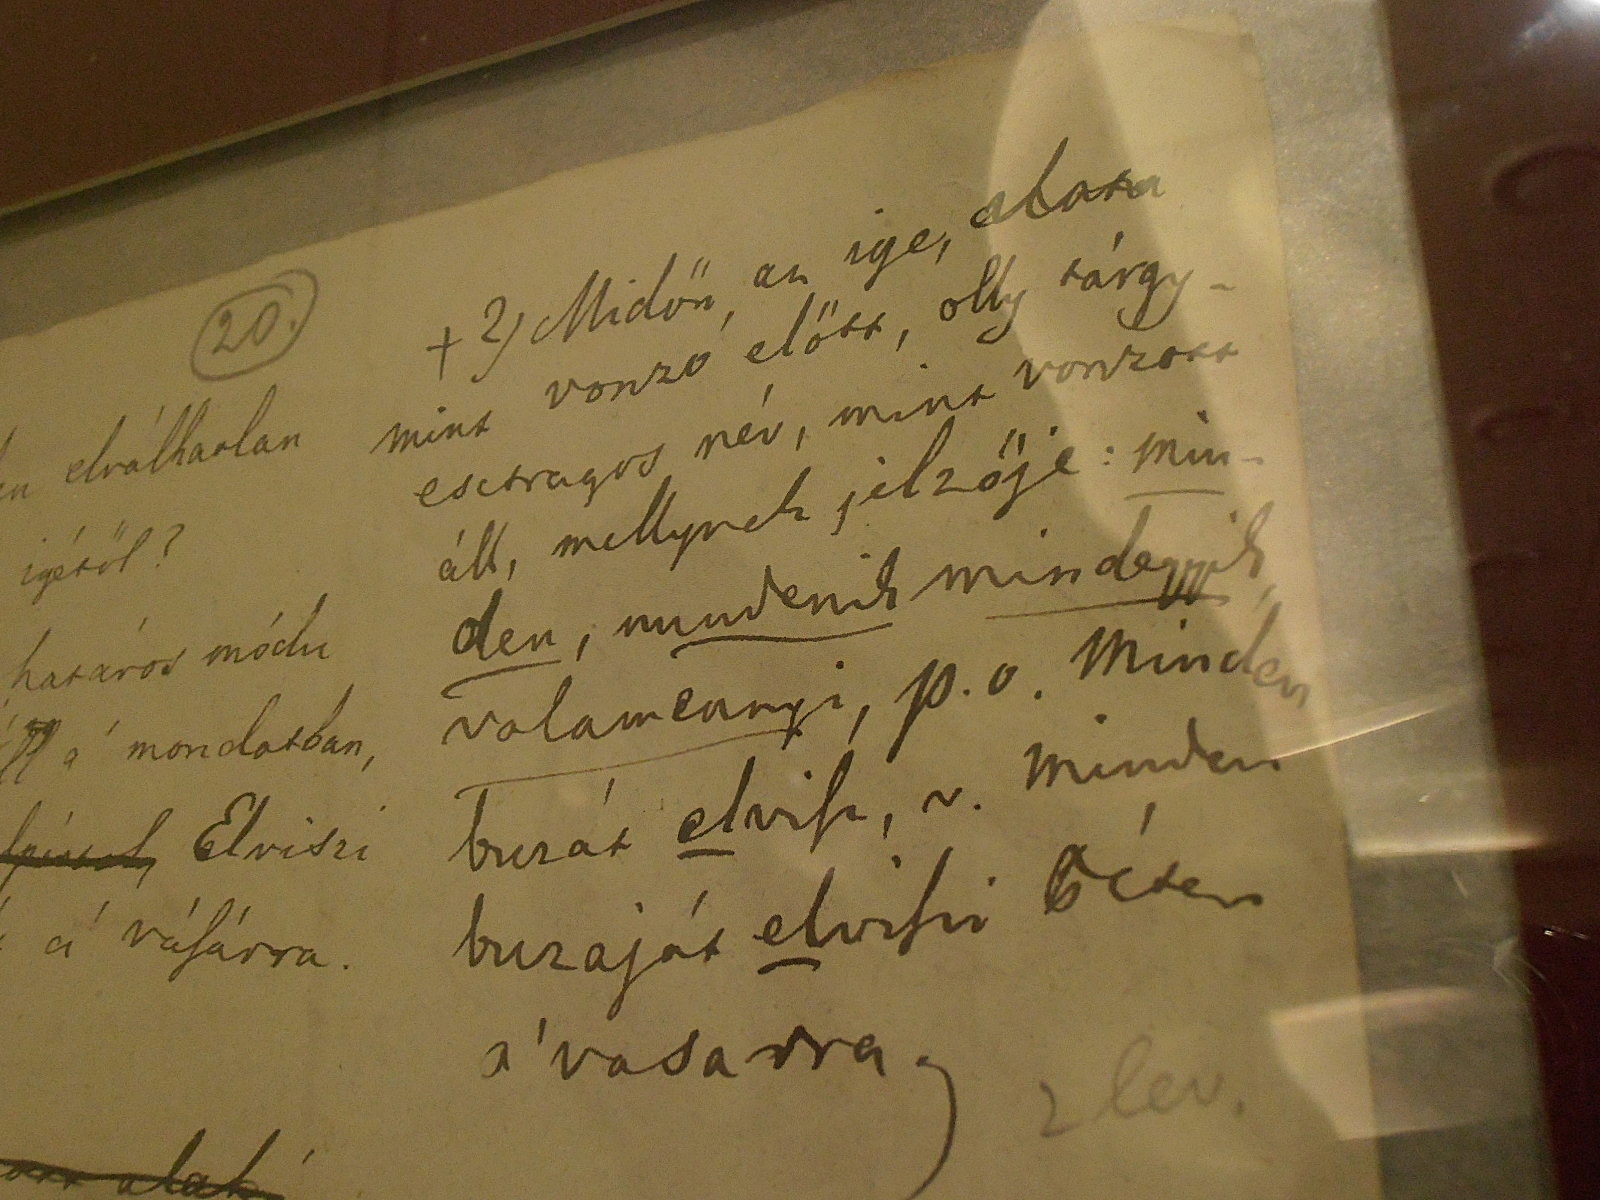 20.
elválhatlan
igétöl?
határos módu
a' mondatban,
Elviszi
a' váſárra.
+ 2) Midőn, az ige, alata
mint vonzó előtt, olly tárgy-
esetragos név, mint vonzott
áll, mellynek jelzője: min-
den, mindenik mindegyik,
valamennyi, p. o. Minden
buzát elviſzi, v. Minden
buzáját elviſzi Öcsém
a' vasarra.
2 lev.
alak